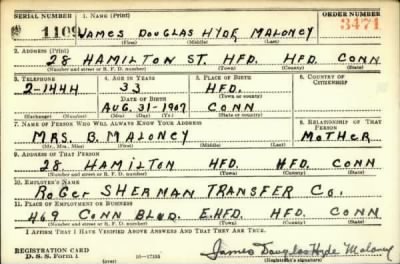 SERIAL NUMBER 1. NAME (Print) ORDER NUMBER
1109 JAMES DOUGLAS HYDE MALONEY 3471
(First) (Middle) (Last)
2. ADDRESS (Print)
28 HAMILTON ST. HFD. HFD. CONN
(Number and street or R. F. D. number) (Town) (County) (State)
3. TELEPHONE 4. AGE IN YEARS 5. PLACE OF BIRTH 6. COUNTRY OF CITIZENSHIP
2-1444 33 HFD.
DATE OF BIRTH (Town or county)
AUG. 31-1907 CONN
(Exchange) (Number) (Mo.) (Day) (Yr.) (State or country)
7. NAME OF PERSON WHO WILL ALWAYS KNOW YOUR ADDRESS 8. RELATIONSHIP OF THAT PERSON
MRS. B. MALONEY MOTHER
(Mr., Mrs., Miss) (First) (Middle) (Last)
9. ADDRESS OF THAT PERSON
28. HAMILTON HFD. HFD CONN
(Number and street or R. F. D. number) (Town) (County) (State)
10. EMPLOYER'S NAME
ROGER SHERMAN TRANSFER CO.
11. PLACE OF EMPLOYMENT OR BUSINESS
469 CONN BLVD. E.HFD. HFD. CONN
(Number and street or R. F. D. number) (Town) (County) (State)
I AFFIRM THAT I HAVE VERIFIED ABOVE ANSWERS AND THAT THEY ARE TRUE.
REGISTRATION CARD
D. S. S. Form 1 (over) 16-17105 James Douglas Hyde Maloney
(Registrant's signature)